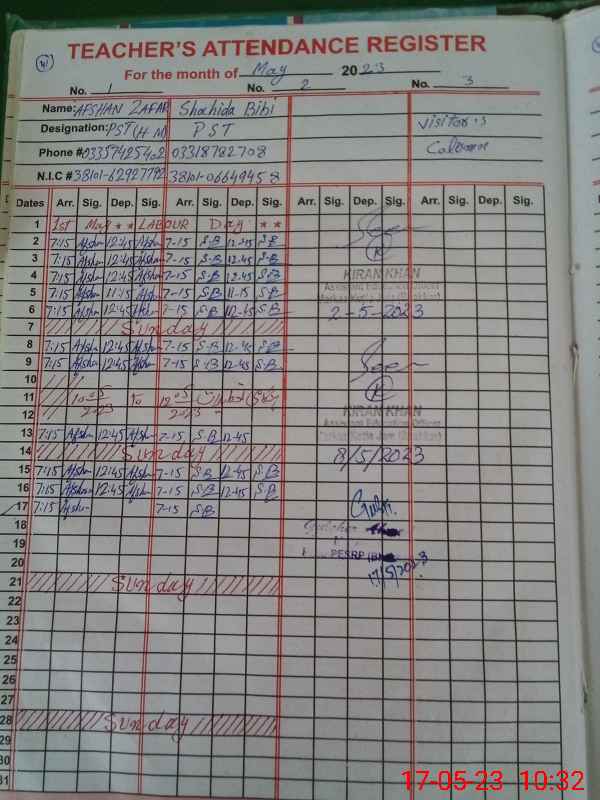 TEACHER'S ATTENDANCE REGISTER
For the month of May 2023
No. 1 No. 2 No. 3
Name: AFSHAN ZAFAR Shahida Bibi
Designation: PST (H M) PST visitor's
Phone # 03357425402 03318782708
N.I.C # 38101-62927792 38101-0664945 8
Dates Arr. Sig. Dep. Sig. Arr. Sig. Dep. Sig. Arr. Sig. Dep. Sig. Arr. Sig. Dep. Sig.
1 1st May ★★ LABOUR Day ★★
2 7:15 Afshan 12:45 Afshan 7-15 S.B 12-45 S.B
3 7:15 Afshan 12:45 Afshan 7-15 S.B 12-45 S.B
4 7:15 Afshan 12:45 Afshan 7-15 S.B 12.45 S.B KIRAN KHAN
5 7:15 Afshan 11:15 Afshan 7-15 S.B 11-15 S.B
6 7:15 Afshan 12:45 Afshan 7-15 S.B 12-45 S.B 2-5-2023
7 Sunday
8 7:15 Afshan 12:45 Afshan 7-15 S-B 12-45 S-B
9 7:15 Afshan 12:45 Afshan 7-15 S-B 12-45 S.B
10
11 10-05-2023 To 12-05-2023
12 KIRAN KHAN
13 7:15 Afshan 12:45 Afshan 7-15 S.B 12-45
14 Sunday 8/5/2023
15 7:15 Afshan 12:45 Afshan 7-15 S.B 12-45 S.B
16 7:15 Afshan 12:45 Afshan 7-15 S.B 12-45 S.B
17 7:15 Afshan 7-15 S.B
18
19
20 PESRP 17/5/2023
21 Sunday
22
23
24
25
26
27
28 Sunday
29
30
31
17-05-23 10:32